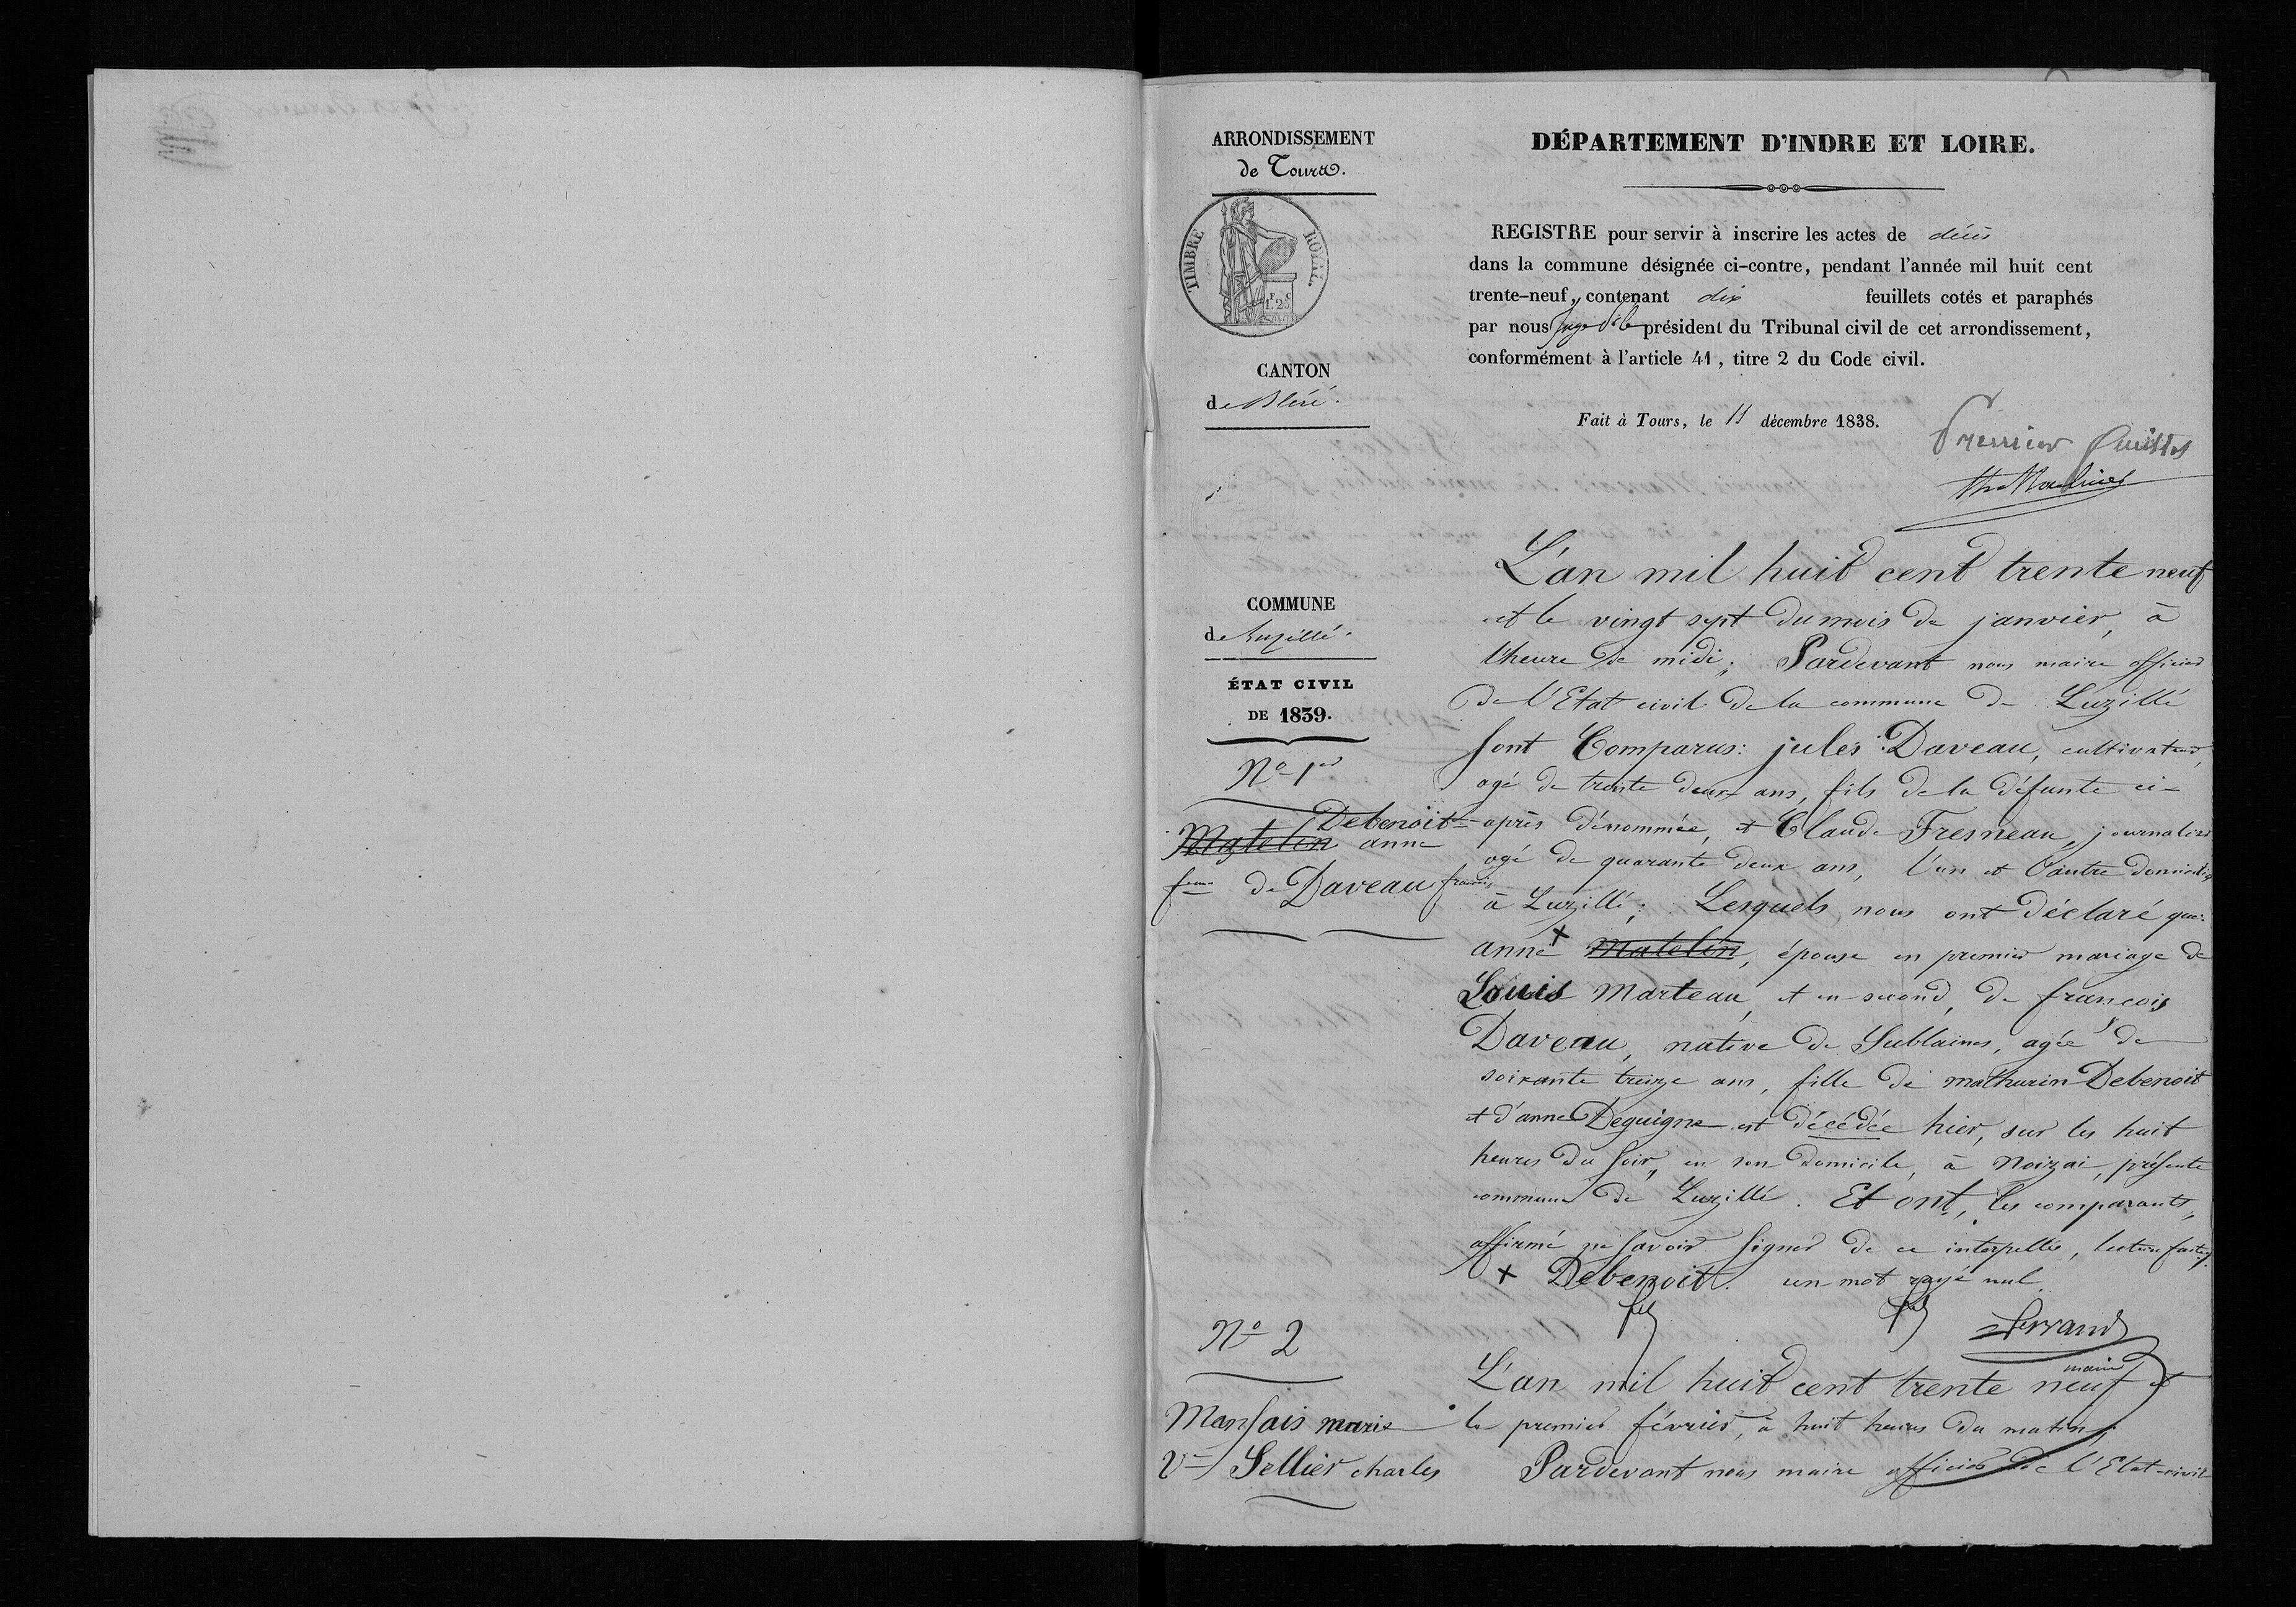 ARRONDISSEMENT
de Tours.
TIMBRE ROYAL
1F.25C
CANTON
de Bléré.
COMMUNE
de Luzillé.
ÉTAT CIVIL
DE 1839.
DÉPARTEMENT D'INDRE ET LOIRE.
REGISTRE pour servir à inscrire les actes de décès
dans la commune désignée ci-contre, pendant l'année mil huit cent
trente-neuf, contenant dix feuillets cotés et paraphés
par nous juge président du Tribunal civil de cet arrondissement,
conformément à l'article 41, titre 2 du Code civil.
Fait à Tours, le 11 décembre 1838.
Premier
No 1er
Debenoit
Matelin anne
fme de Daveau françois
L'an mil huit cent trente neuf
et le vingt sept du mois de janvier, à
l'heure de midi; Pardevant nous maire officier
de l'Etat civil de la commune de Luzillé
sont Comparus: jules Daveau, cultivateur,
agé de trente deux ans, fils de la défunte ci-
après dénommée, et Claude Fresneau, journalier
agé de quarante deux ans, l'un et l'autre domiciliés
à Luzillé; Lesquels nous ont déclaré que:
anne + Matelin, épouse en premier mariage de
Louis Marteau, et en second, de françois
Daveau, native de Sublaines, agée de
soixante treize ans, fille de mathurin Debenoit
et d'anne Deguigne est décédée hier, sur les huit
heures du soir, en son domicile, à Noizai, présente
commune de Luzillé. Et ont, les comparants,
affirmé ne savoir signer de ce interpellés, lecture faite.
+ Debenoit. un mot rayé nul
Ferrand
maire
No 2
Mansais marie
Ve Sellier charles
L'an mil huit cent trente neuf et
le premier février, à huit heures du matin;
Pardevant nous maire officier de l'Etat-civil